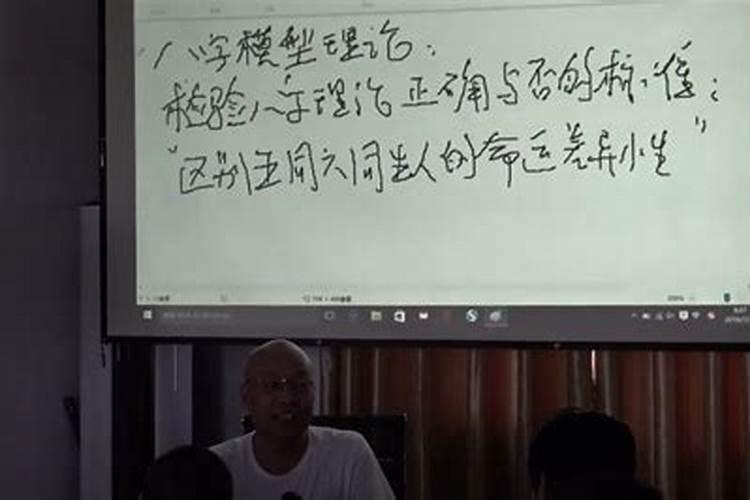 八字模型理论：
检验八字理论正确与否的标准：
"区别五同六同生人的命运差异小生"